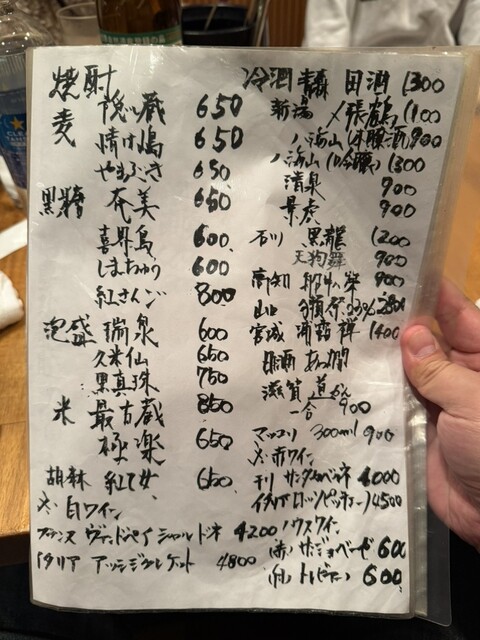 焼酎
麦 隠し蔵 650
情け嶋 650
やまふさ 650
黒糖 奄美 650
喜界島 600
しまちゅう 600
紅さんご 800
泡盛 瑞泉 600
久米仙 650
黒真珠 750
米 最古蔵 850
極楽 650
胡麻 紅乙女 650
白ワイン
フランス ヴァンドペイシャルドネ 4200
イタリア アッシジグレケット 4800
冷酒 青森 田酒 1300
新潟 〆張鶴 1100
八海山(本醸造) 900
八海山(吟醸) 1300
清泉 900
景虎 900
石川 黒龍 1200
天狗舞 900
高知 900
山口 獺祭 23% 2800
宮城 浦霞禅 1400
滋賀
一合 900
マッコリ 300ml 900
赤ワイン
チリ サンタカベルネ 4000
イタリア 4500
ハウスワイン
(赤) サンジョベーゼ 600
(白) トレビアーノ 600